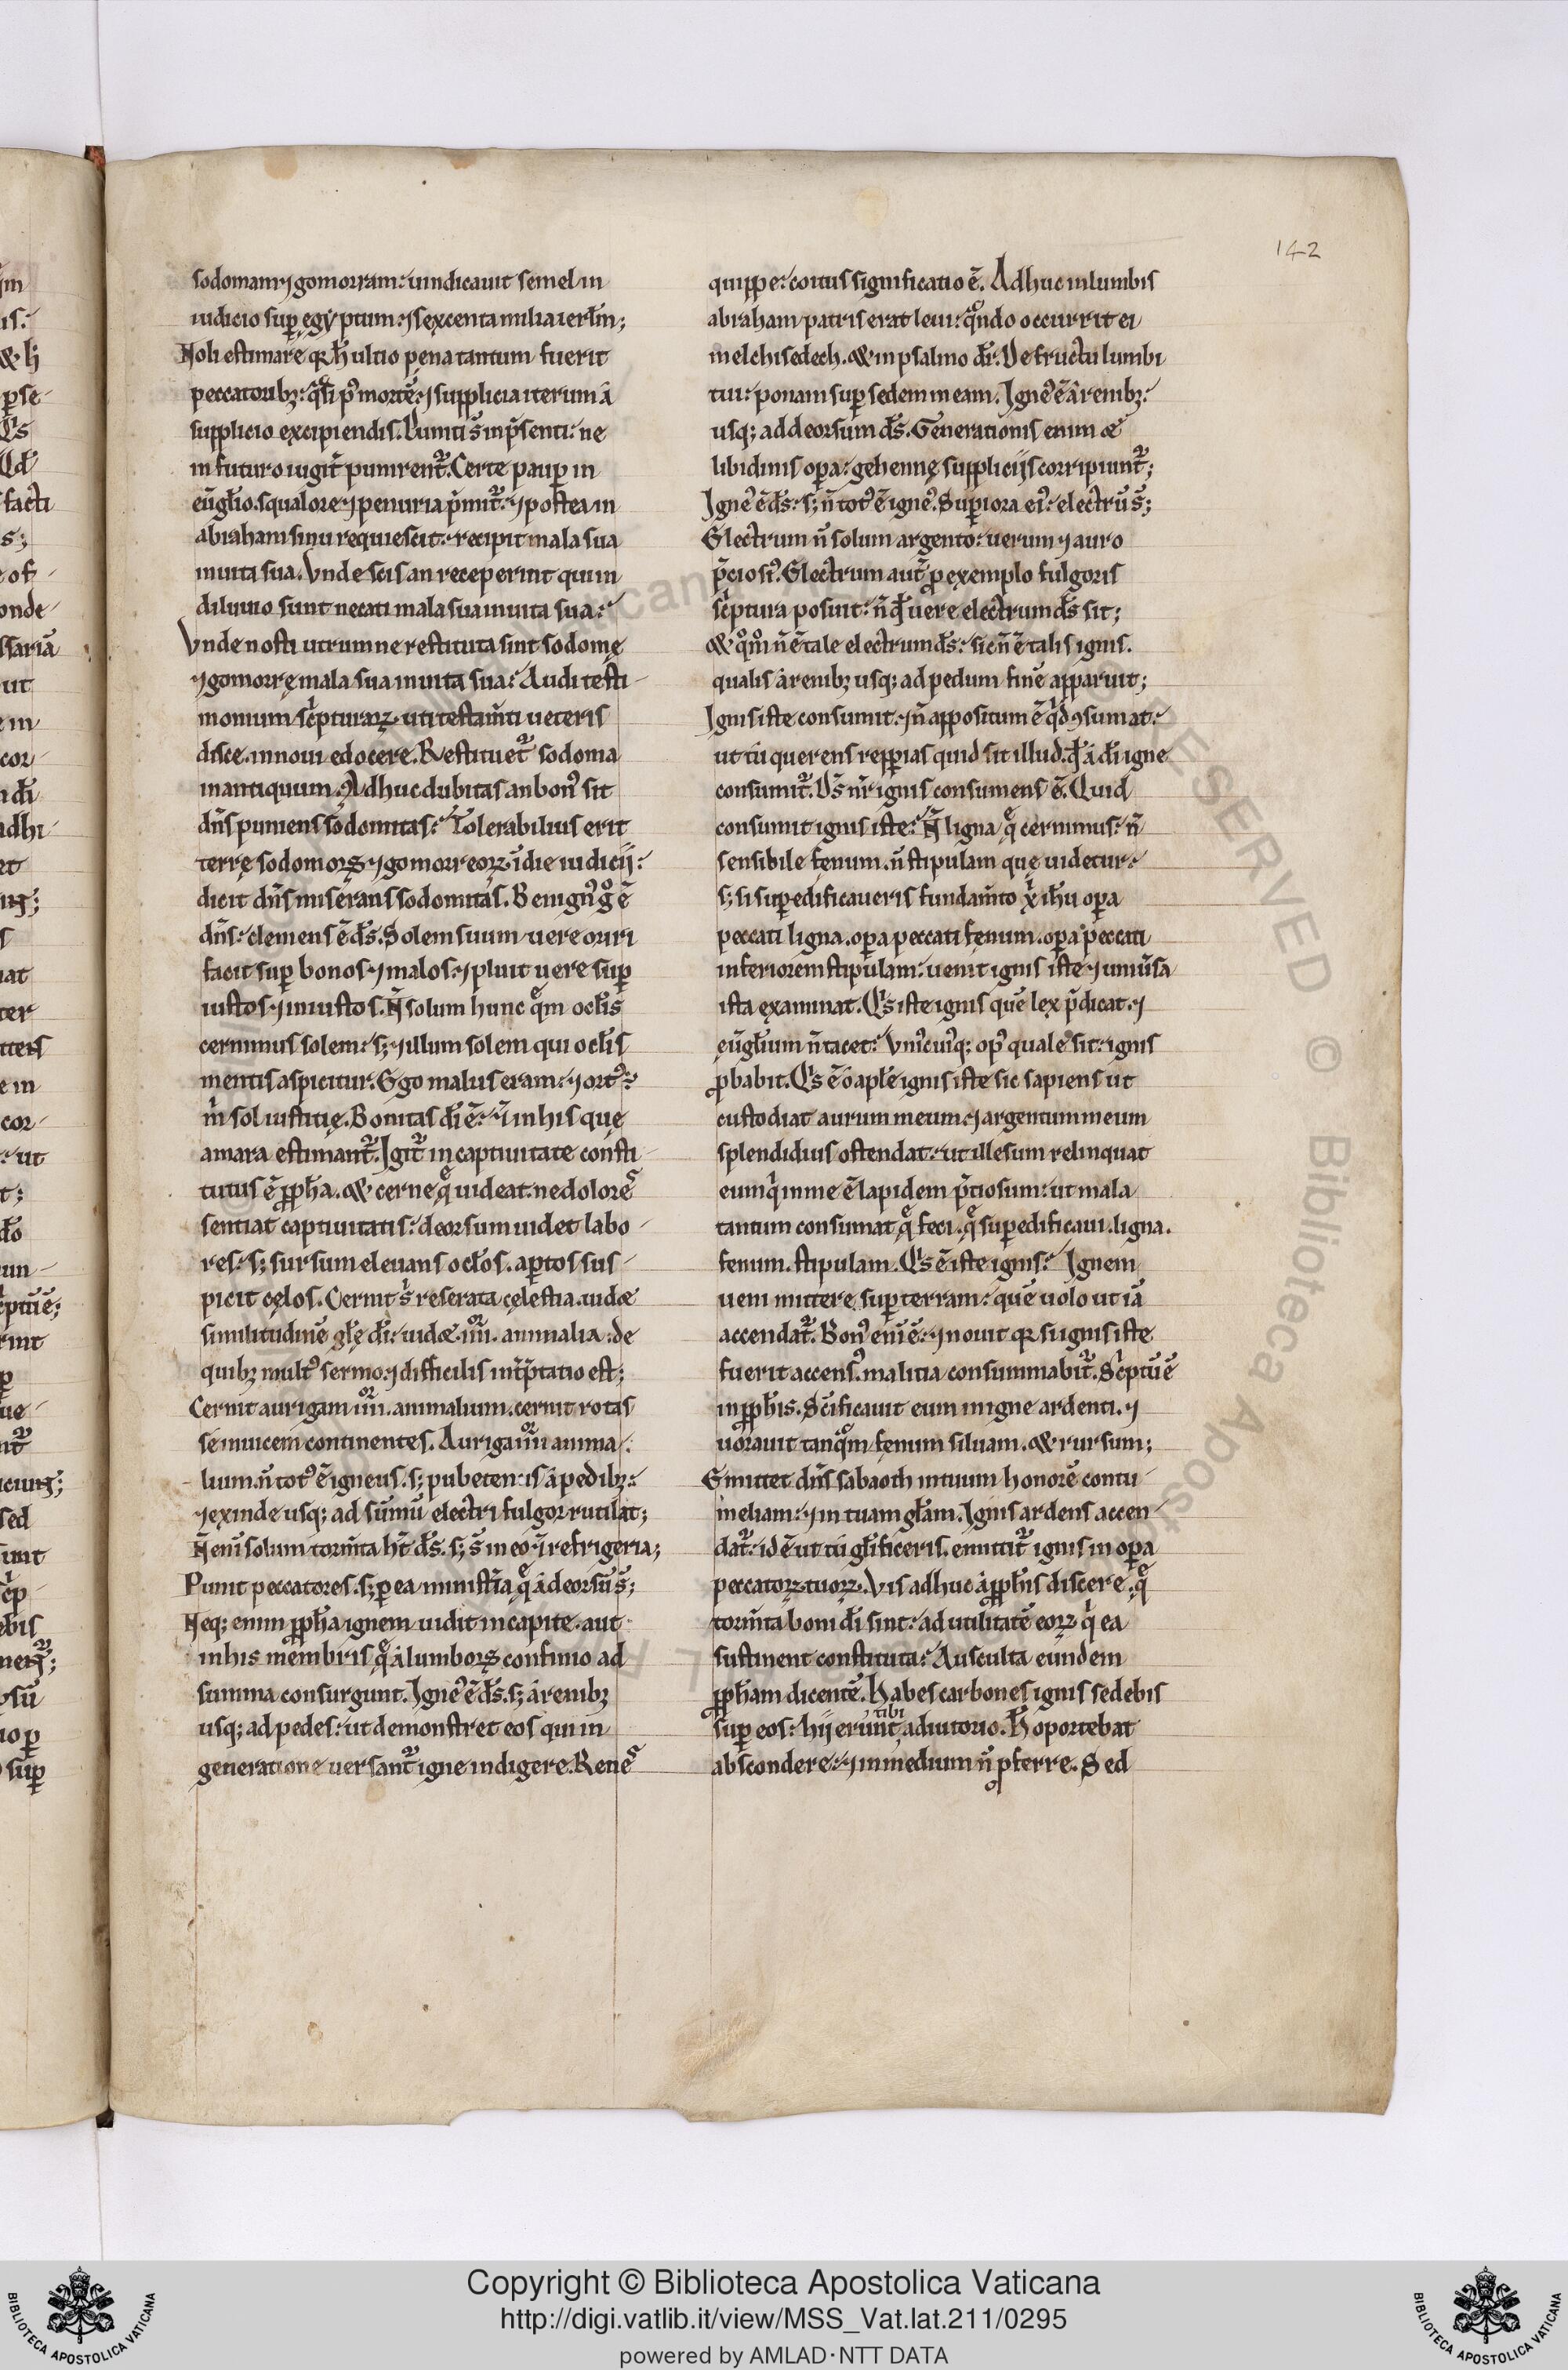 142
sodomam ⁊ gomorram: uindicauit semel in
iudicio sup̱ ęgyptum: ⁊ sexcenta milia ierl̄m;
Noli estimare qꝛ h̄ ultio pena tantum fuerit
peccatoribꝫ: q̊si p̾ mortē: ⁊ supplicia iterum ā
supplicio excipiendis. Puniti s̄ in p̄senti: ne
in futuro iugit̾ punirent᷑. Certe paup̱ in
eūgl̄io. squalore ⁊ penuria p̄mit᷑: ⁊ postea in
abraham sinu requiescit: recipit mala sua
in uita sua. Vnde scis an receperint qui in
diluuio sunt necati mala sua in uita sua:
Vnde nosti utrumne restituta sint sodomę
⁊ gomorrę mala sua in uita sua: Audi testi-
monium sc̾pturaꝝ uti testam̄ti ueteris
disce. in noui edocere. Restituet᷑ sodoma
in antiquum. Adhuc dubitas an bon᷒ sit
dn̄s puniens sodomitas: Tolerabilius erit
terrę sodomoꝝ ⁊ gomorreoꝝ ī die iudicij:
dicit dn̄s miserans sodomitas. Benign᷒ g̊ ē
dn̄s: clemens ē d̄s. Solem suum uere oriri
facit sup̱ bonos ⁊ malos: ⁊ pluit uere sup̱
iustos ⁊ iniustos. N̄ solum hunc q̄m ocl̄is
cernimus solem: sꝫ ⁊ illum solem qui ocl̄is
mentis aspicitur. Ego malus eram: ⁊ ort᷒ ē
m̄ sol iustitię. Bonitas dī ē: ⁊ in his quę
amara estimant᷑. Igit᷑ in captiuitate consti-
tutus ē ꝓph̄a. & cerne q̄ uideat: ne dolorē
sentiat captiuitatis: deorsum uidet labo-
res: sꝫ sursum eleuans ocl̄os. ap̱tos sus-
picit cęlos. Cernit s̾ reserata cęlestia. uidet
similitudinē gl̄ę dī: uidet .iiii. animalia: de
quibꝫ mult᷒ sermo: ⁊ difficilis int̾p̄tatio est;
Cernit aurigam .iiii. animalium. cernit rotas
se inuicem continentes. Auriga .iiii. anima-
lium. n̄ tot᷒ ē igneus. sꝫ pubeten is ā pedibꝫ:
⁊ exinde usqꝫ ad sūmū electri fulgor rutilat;
N̄ enī solum torm̄ta h̄t d̄s. sꝫ s̄ in eo ⁊ refrigeria;
Punit peccatores. sꝫ p̱ ea ministīa q̄ ā deorsū s̄;
Neqꝫ enim ꝓph̄a ignem uidit in capite. aut
in his membris q̄ ā lumboꝝ confinio ad
summa consurgunt. Igne᷒ ē d̄s. sꝫ ā renibꝫ
usqꝫ ad pedes: ut demonstret eos qui in
generatione uersant᷑ igne indigere. Renē
quippe: coitus significatio ē. Adhuc in lumbis
abraham patris erat leui: qn̊do occurrit ei
melchisedech. & in psalmo dī: De fructu lumbi
tui: ponam sup̱ sedem meam. Igne᷒ ē ā renibꝫ:
usqꝫ ad deorsum d̄s. Generationis enim et
libidinis op̱a: gehennę supplicijs corripiunt᷑;
Igne᷒ ē d̄s: sꝫ n̄ tot᷒ ē igne᷒. Sup̱iora ei᷒: electrū s̄;
Electrum n̄ solum argento: uerum ⁊ auro
p̄ciosi᷒. Electrum aut̄ ꝓ exemplo fulgoris
sc̾ptura posuit: n̄ qd̄ uere electrum d̄s sit;
& qm̊ n̄ ē tale electrum d̄s: sic n̄ ē talis ignis.
qualis ā renibꝫ usqꝫ ad pedum finē apparuit;
Ignis iste consumit: ⁊ n̄ appositum ē qd̾ ꝯsumat:
ut tu querens repp̱ias quid sit illud. qd̄ ā dī igne
consumit᷑. Ds̄ nr̄ ignis consumens ē. Quid
consumit ignis iste: N̄ ligna q̄ cernimus: n̄
sensibile fęnum. n̄ stipulam quę uidetur:
sꝫ si sup̱edificaueris fundam̄to x̄p̄i ih̄u op̱a
peccati ligna. op̱a peccati fęnum. op̱a peccati
inferiorem stipulam: uenit ignis iste ⁊ uniu̾sa
ista examinat. Qis̄ iste ignis quē lex p̄dicat. ⁊
eūgl̄ium n̄ tacet: Vni᷒cui᷒qꝫ op᷒ quale sit: ignis
ꝓbabit. Qis̄ ē ō apl̄e ignis iste sic sapiens ut
custodiat aurum meum: ⁊ argentum meum
splendidius ostendat: ut illesum relinquat
eum q̾ in me ē lapidem p̄tiosum: ut mala
tantum consumat q̄ feci. q̄ sup̱edificaui. ligna.
fenum. stipulam. Qis̄ ē iste ignis: Ignem
ueni mittere sup̱ terram: quē uolo ut iā
accendat᷑. Bon᷒ enī ē: ⁊ nouit qꝛ si ignis iste
fuerit accens᷒. malitia consummabit᷑. Sc̾ptū ē
in ꝓph̄is. Sc̄ificauit eum in igne ardenti. ⁊
uorauit tanq̄m fęnum siluam. & rursum;
Emittet dn̄s sabaoth in tuum honorē contu-
meliam: ⁊ in tuam gl̄am. Ignis ardens accen-
dat᷑: id ē ut tu gl̄ificeris. emittit᷑ ignis in op̱a
peccatoꝝ tuoꝝ. Vis adhuc ā ꝓph̄is discere. q̄
torm̄ta boni dī sint: ad utilitatē eoꝝ q̾ ea
sustinent constituta: Ausculta eundem
ꝓph̄am dicentē. Habes carbones ignis sedebis
sup̱ eos: hij erunt tibi adiutorio. H̄ oportebat
abscondere: ⁊ in medium n̄ ꝓferre. Sed
Copyright © Biblioteca Apostolica Vaticana
http://digi.vatlib.it/view/MSS_Vat.lat.211/0295
powered by AMLAD·NTT DATA